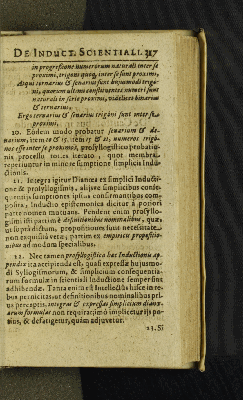 DE INDUCT. SCIENTIALI. 217
in progressione numerorum naturali inter se
proximi, trigoni quoq, inter se sunt proximi,
Atqui ternarius & senarius sunt hujusmodi trigo-
ni, quorum ultimi constituentes numeri sunt
naturali in serie proximi, videlicet binarius
& ternarius,
Ergo ternarius & senarius trigoni sunt inter se
proximi,
20. Eodem modo probatur senarium & de-
narium, item 10 & 15. item 15 & 21, numeros trigo-
nos esse inter se proximos, prosyllogistico probatio-
nis processu toties iterato, quot membra
requiruntur in numero sumptionis simplicis Indu-
ctionis.
21. Integra igitur Dianœa ex simplici Inducti-
one & prosyllogismis, aliisve simplicibus conse-
quentiis sumptionis ipsius consentaneis com-
posita, Inductio epistemonica dicitur & poporit
parte nomen mutuans. Pendent enim prosyllo-
gismi isti partim è definitionibus nominalibus, quæ,
ut supra dictum, propositiones sunt necessitate
non exquisitâ veræ; partim ex empiricis propositio-
nibus ad modum specialibus.
22. Nec tamen prosyllogistica hæc Inductionis ap-
pendix ita accipienda est, quasi expressæ hujusmo-
di Syllogismorum, & simplicium consequentia-
rum formulæ in scientiali Inductione semper sint
adhibendæ. Tanta enim est Intellectûs hisce in re-
bus pernicitas, ut definitionibus nominalibus pri-
us perceptis, integras & expressas simplicium dianœ-
arum formulas non requirat, imò implicetur iis po-
tius, & defatigetur, quàm adjuvetur.
23. Si